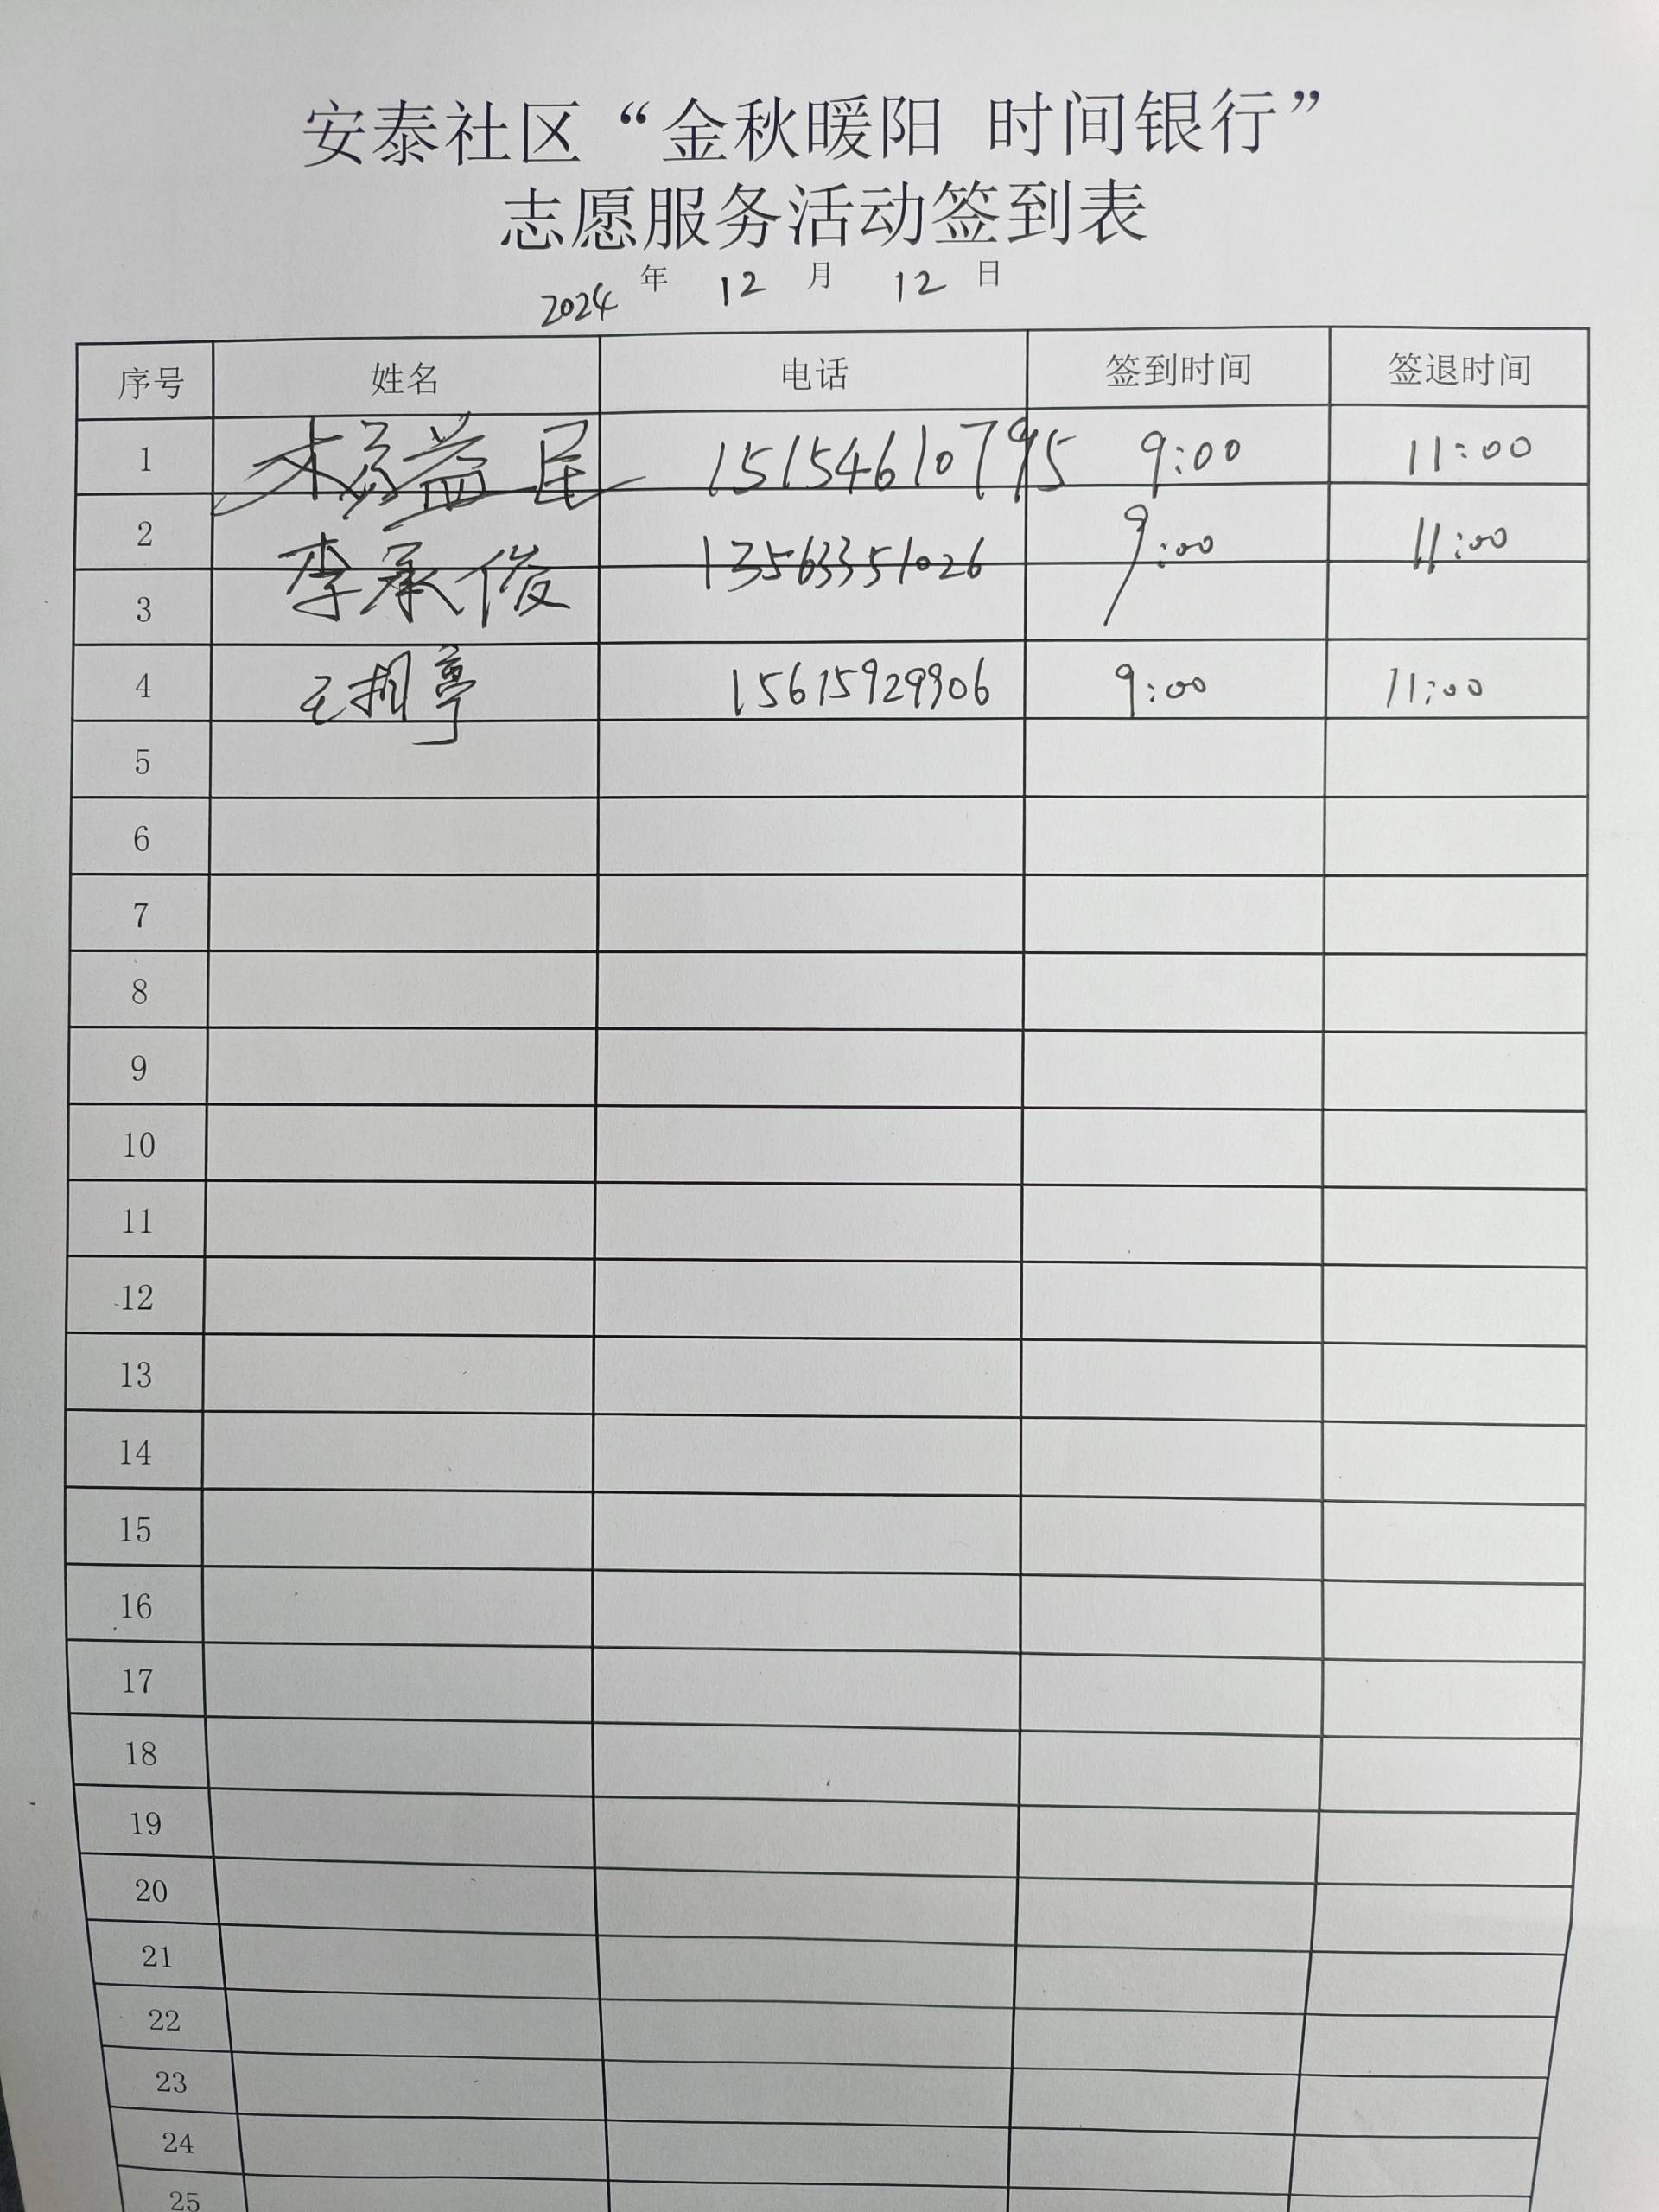 安泰社区“金秋暖阳 时间银行”
志愿服务活动签到表
2024 年 12 月 12 日
序号 姓名 电话 签到时间 签退时间
1 益民 15154610795 9:00 11:00
2 李承俊 13563351026 9:00 11:00
3
4 王 亭 15615929906 9:00 11:00
5
6
7
8
9
10
11
12
13
14
15
16
17
18
19
20
21
22
23
24
25